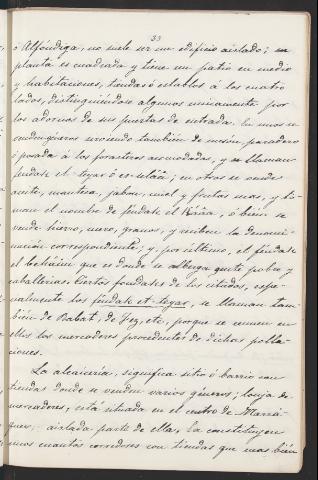 33
ó Alfóndiga, no suele ser un edificio aislado; su
planta es cuadrada y tiene un patio en medio
y habitaciones, tiendas ó establos á los cuatro
lados, distinguiéndose algunos unicamente por
los adornos de sus puertas de entrada. En unos se
venden géneros sirviendo también de mesón, paradero
ó posada á los forasteros acomodados, y se llaman
fúndak et-teyar ó es-selââ; en otros se vende
aceite, manteca, jabon, miel y frutas secas, y to-
man el nombre de fúndak el ó bién se
vende hierro, nuez, granos, y reciben la denomi-
nación correspondiente; y, por último, el fúndak
el behéim que es donde se alberga gente pobre y
caballerías. Ciertos fondaks de los citados, espe-
cialmente los fúndak et-teyar, se llaman tam-
bién de Rabat, de Fez, etc, porque se reunen en
ellos los mercaderes procedentes de dichas pobla-
ciones.
La alcaicería, significa sitio ó barrio con
tiendas donde se venden varios géneros; lonja de
mercaderes, está situada en el centro de Marrá-
quex: aislada parte de ella, la constituyen
unos cuantos corredores con tiendas que mas bién